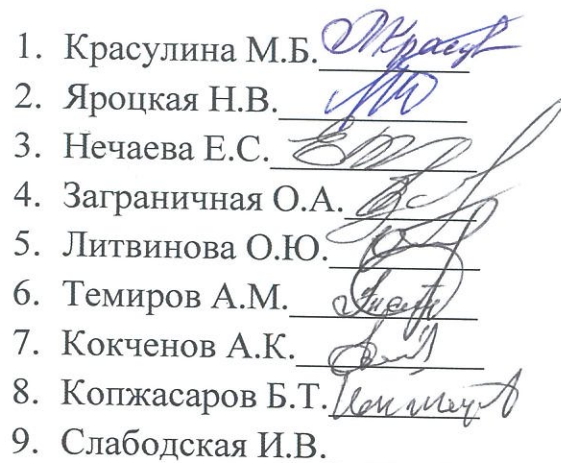 1. Красулина М.Б.
2. Яроцкая Н.В.
3. Нечаева Е.С.
4. Заграничная О.А.
5. Литвинова О.Ю.
6. Темиров А.М.
7. Кокченов А.К.
8. Копжасаров Б.Т.
9. Слабодская И.В.